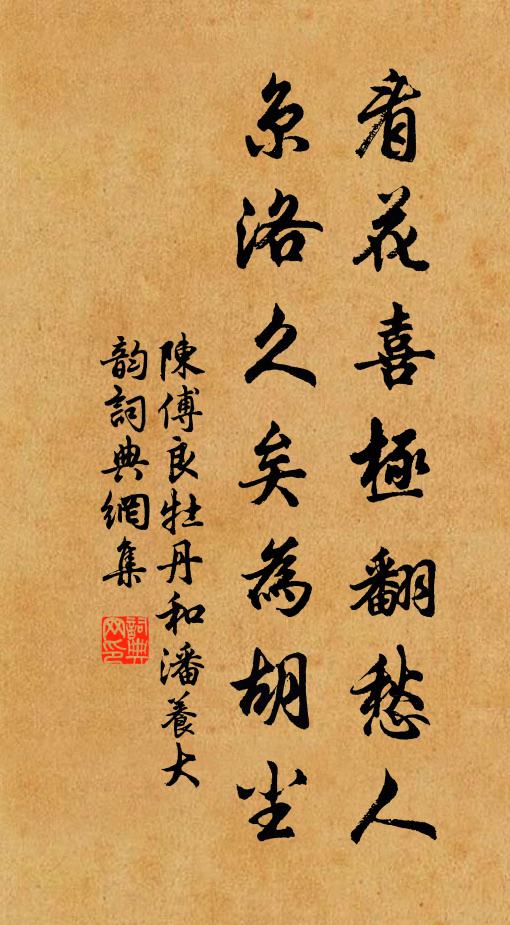 看花喜極翻愁人
京洛久矣為胡尘
陳傅良牡丹和潘養大
韵詞典網集
詞典网印